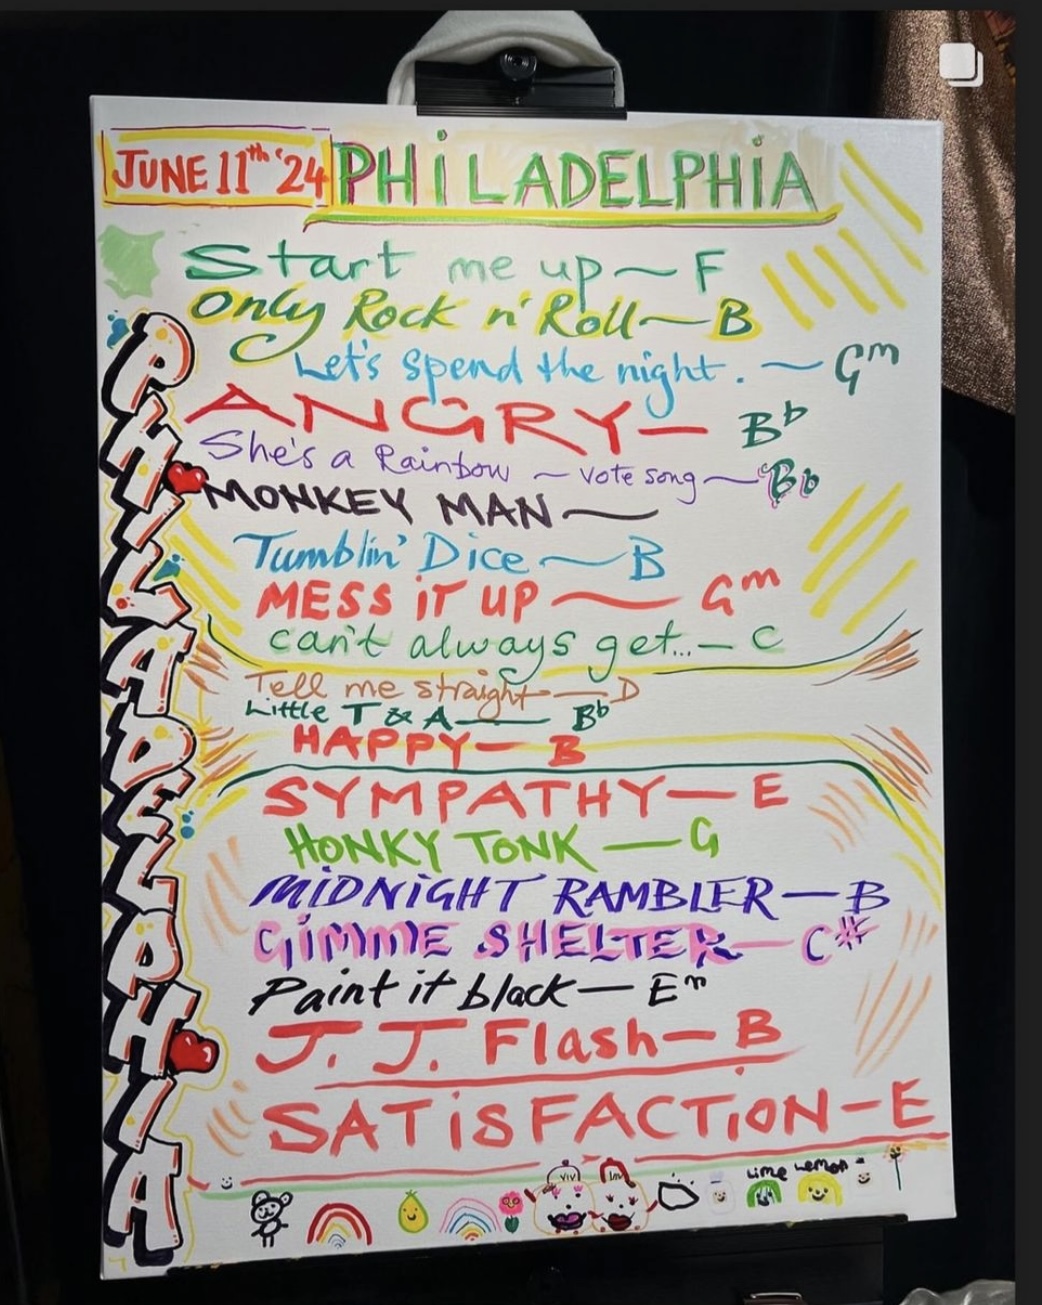 JUNE 11th '24 PHiLADELPHiA
Start me up ~ F
Only Rock n' Roll ~ B
Let's spend the night. ~ Gm
ANGRY — Bb
She's a Rainbow ~ vote song ~ Bb
MONKEY MAN ~
Tumblin' Dice ~ B
MESS iT UP ~ Gm
can't always get... — C
Tell me straight — D
Little T & A — Bb
HAPPY — B
SYMPATHY — E
HONKY TONK — G
MiDNiGHT RAMBLER — B
GiMME SHELTER — C#
Paint it black — Em
J. J. Flash — B
SATiSFACTiON — E
PHILADELPHIA
Lime Lemon